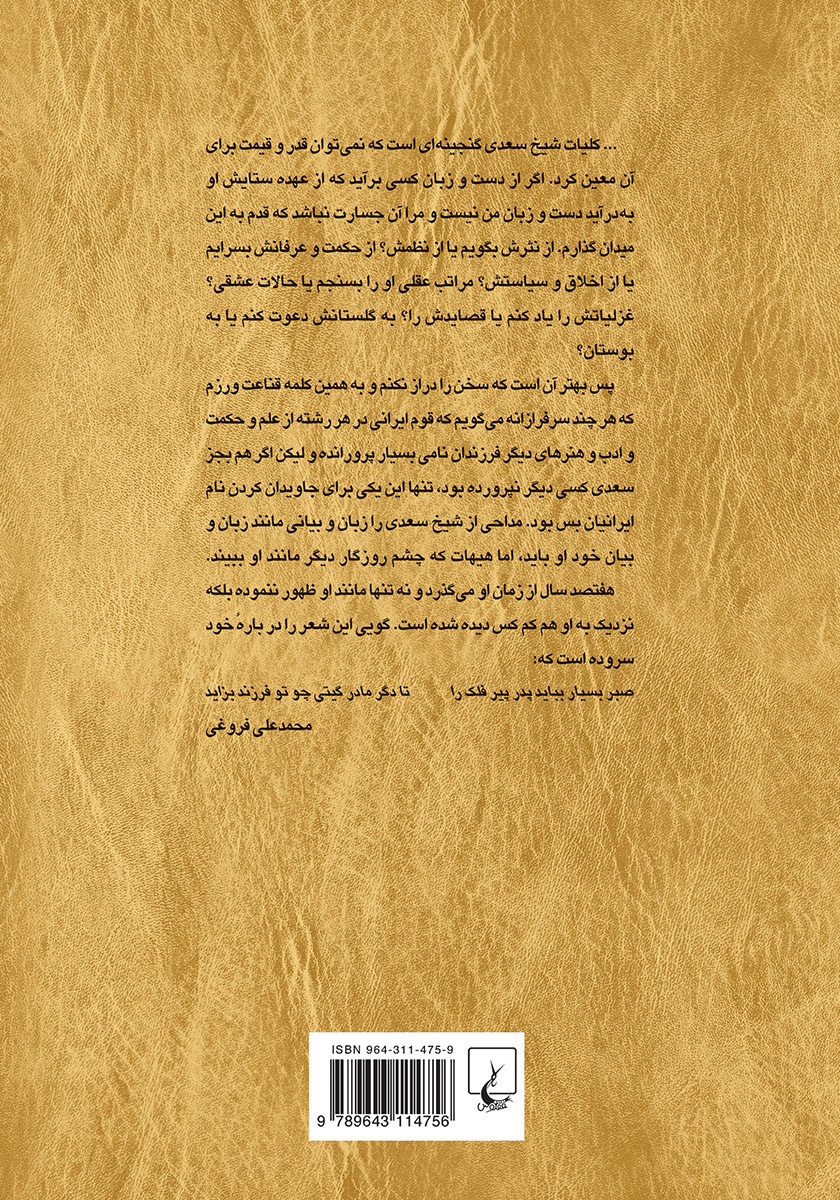 ... کلیات شیخ سعدی گنجینه‌ای است که نمی‌توان قدر و قیمت برای
آن معین کرد. اگر از دست و زبان کسی برآید که از عهده ستایش او
به‌درآید دست و زبان من نیست و مرا آن جسارت نباشد که قدم به این
میدان گذارم. از نثرش بگویم یا از نظمش؟ از حکمت و عرفانش بسرایم
یا از اخلاق و سیاستش؟ مراتب عقلی او را بسنجم یا حالات عشقی؟
غزلیاتش را یاد کنم یا قصایدش را؟ به گلستانش دعوت کنم یا به
بوستان؟
پس بهتر آن است که سخن را دراز نکنم و به همین کلمه قناعت ورزم
که هر چند سرفرازانه می‌گویم که قوم ایرانی در هر رشته از علم و حکمت
و ادب و هنرهای دیگر فرزندان نامی بسیار پرورانده و لیکن اگر هم بجز
سعدی کسی دیگر نپرورده بود، تنها این یکی برای جاویدان کردن نام
ایرانیان بس بود. مداحی از شیخ سعدی را زبان و بیانی مانند زبان و
بیان خود او باید، اما هیهات که چشم روزگار دیگر مانند او ببیند.
هفتصد سال از زمان او می‌گذرد و نه تنها مانند او ظهور ننموده بلکه
نزدیک به او هم کم کس دیده شده است. گویی این شعر را در بارهٔ خود
سروده است که:
صبر بسیار بباید پدر پیر فلک را تا دگر مادر گیتی چو تو فرزند بزاید
محمدعلی فروغی
ISBN 964-311-475-9
9 789643 114756
ققنوس